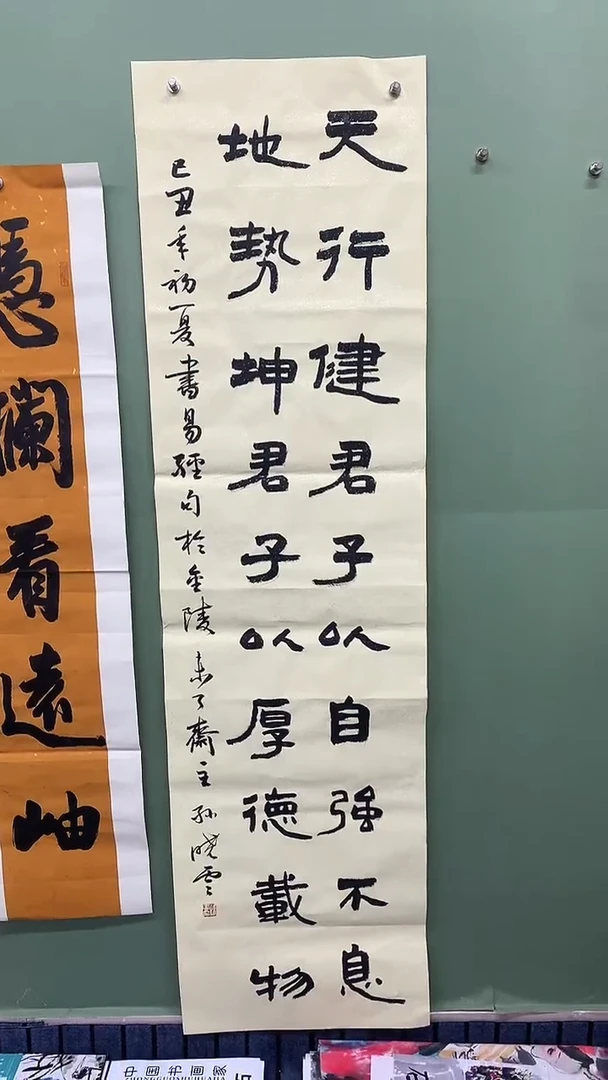 天行健君子以自強不息
地勢坤君子以厚德載物
己丑年初夏書易經句於金陵未了齋主孫曉雲
瀾看遠岫